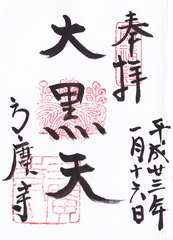 奉拝
平成廿三年
一月十六日
大黒天